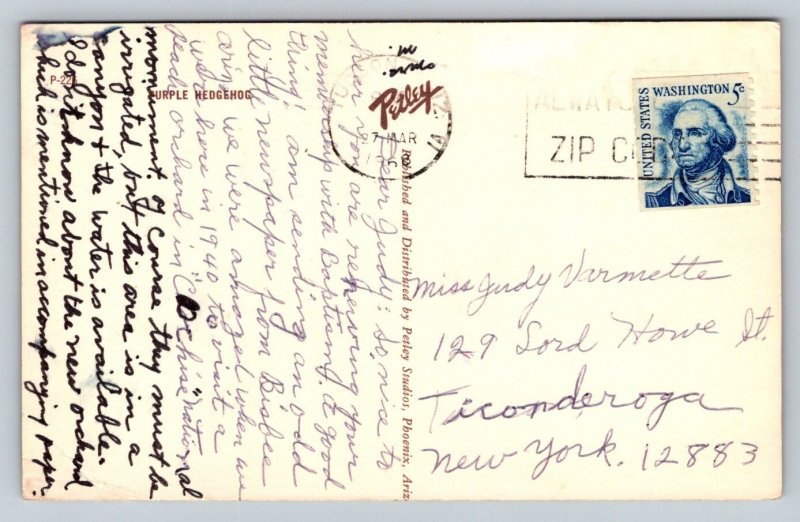 P-22
PURPLE HEDGEHOG
Dear Judy: So nice to
hear you are renewing your
membership with Baptism. A good
thing! I am sending an odd
little newspaper from Bisbee
Ariz. we were amazed when we
were here in 1940 to visit a
dead orchard in "Cochise" National
monument. Of course they must be
irrigated, but this area is in a
canyon & the water is available.
I don't know about the new orchard
which is mentioned in accompanying paper.
Petley
27 MAR
Published and Distributed by Petley Studios, Phoenix, Ariz
ZIP CODE
UNITED STATES
WASHINGTON 5c
Miss Judy Varmette
129 Lord Howe St.
Ticonderoga
New York. 12883